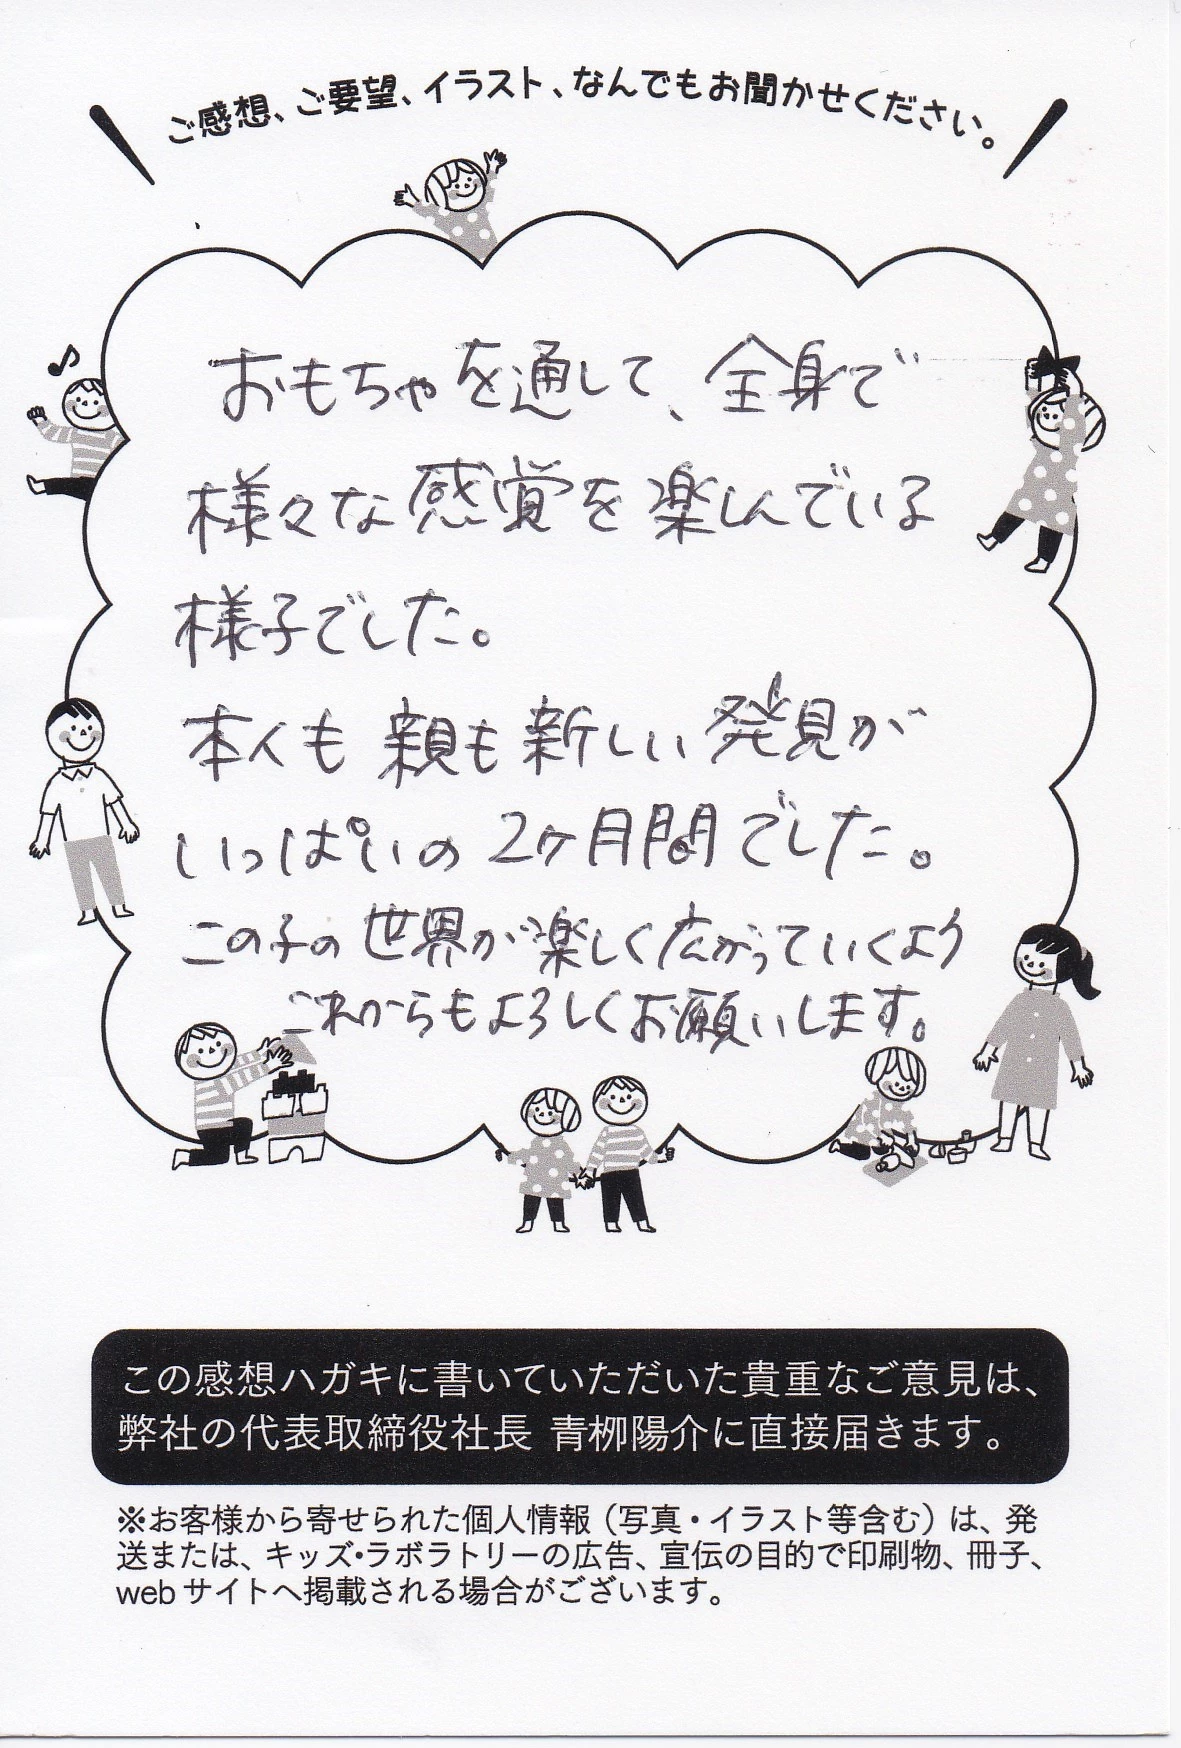 ご感想、ご要望、イラスト、なんでもお聞かせください。
おもちゃを通して、全身で
様々な感覚を楽しんでいる
様子でした。
本人も親も新しい発見が
いっぱいの2ヶ月間でした。
この子の世界が楽しく広がっていくよう
これからもよろしくお願いします。
この感想ハガキに書いていただいた貴重なご意見は、
弊社の代表取締役社長 青栁陽介に直接届きます。
※お客様から寄せられた個人情報（写真・イラスト等含む）は、発
送または、キッズ・ラボラトリーの広告、宣伝の目的で印刷物、冊子、
webサイトへ掲載される場合がございます。